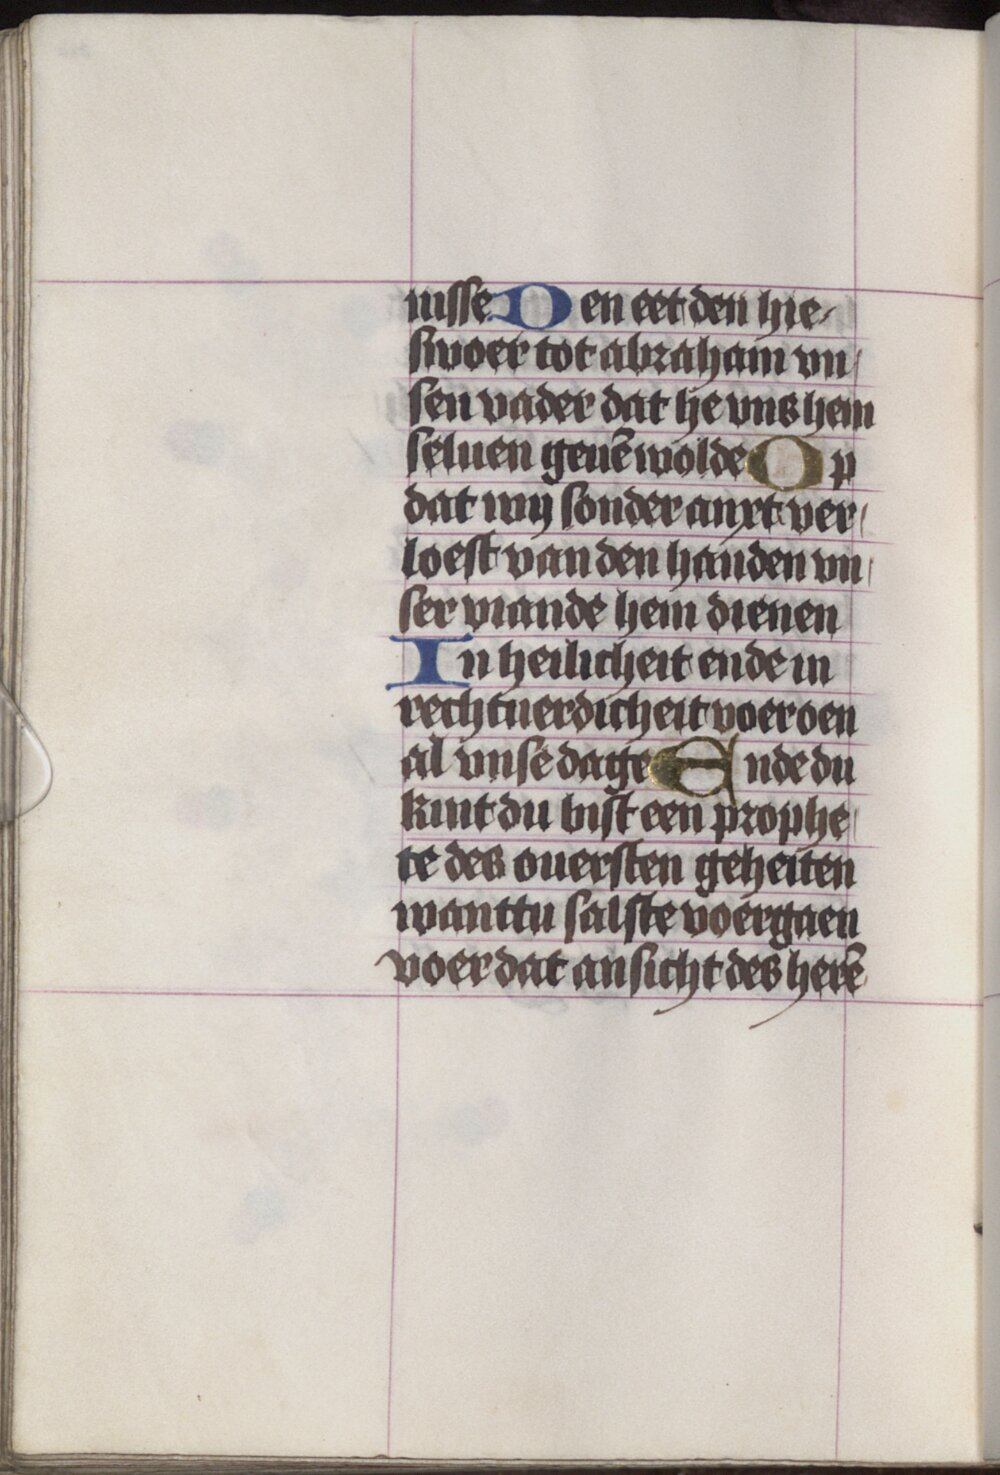 nisse Den eet den hie
swoer tot abraham vn
sen vader dat he vns hem
seluen geuē wolde Op
dat wij sonder anxt ver
loest van den handen vn
ser viande hem dienen
In heilicheit ende in
rechtuerdicheit voer oen
al vnse dage Ende du
kint du bist een prophe
te des ouersten geheiten
wanttu salste voergaen
voer dat ansicht des herē